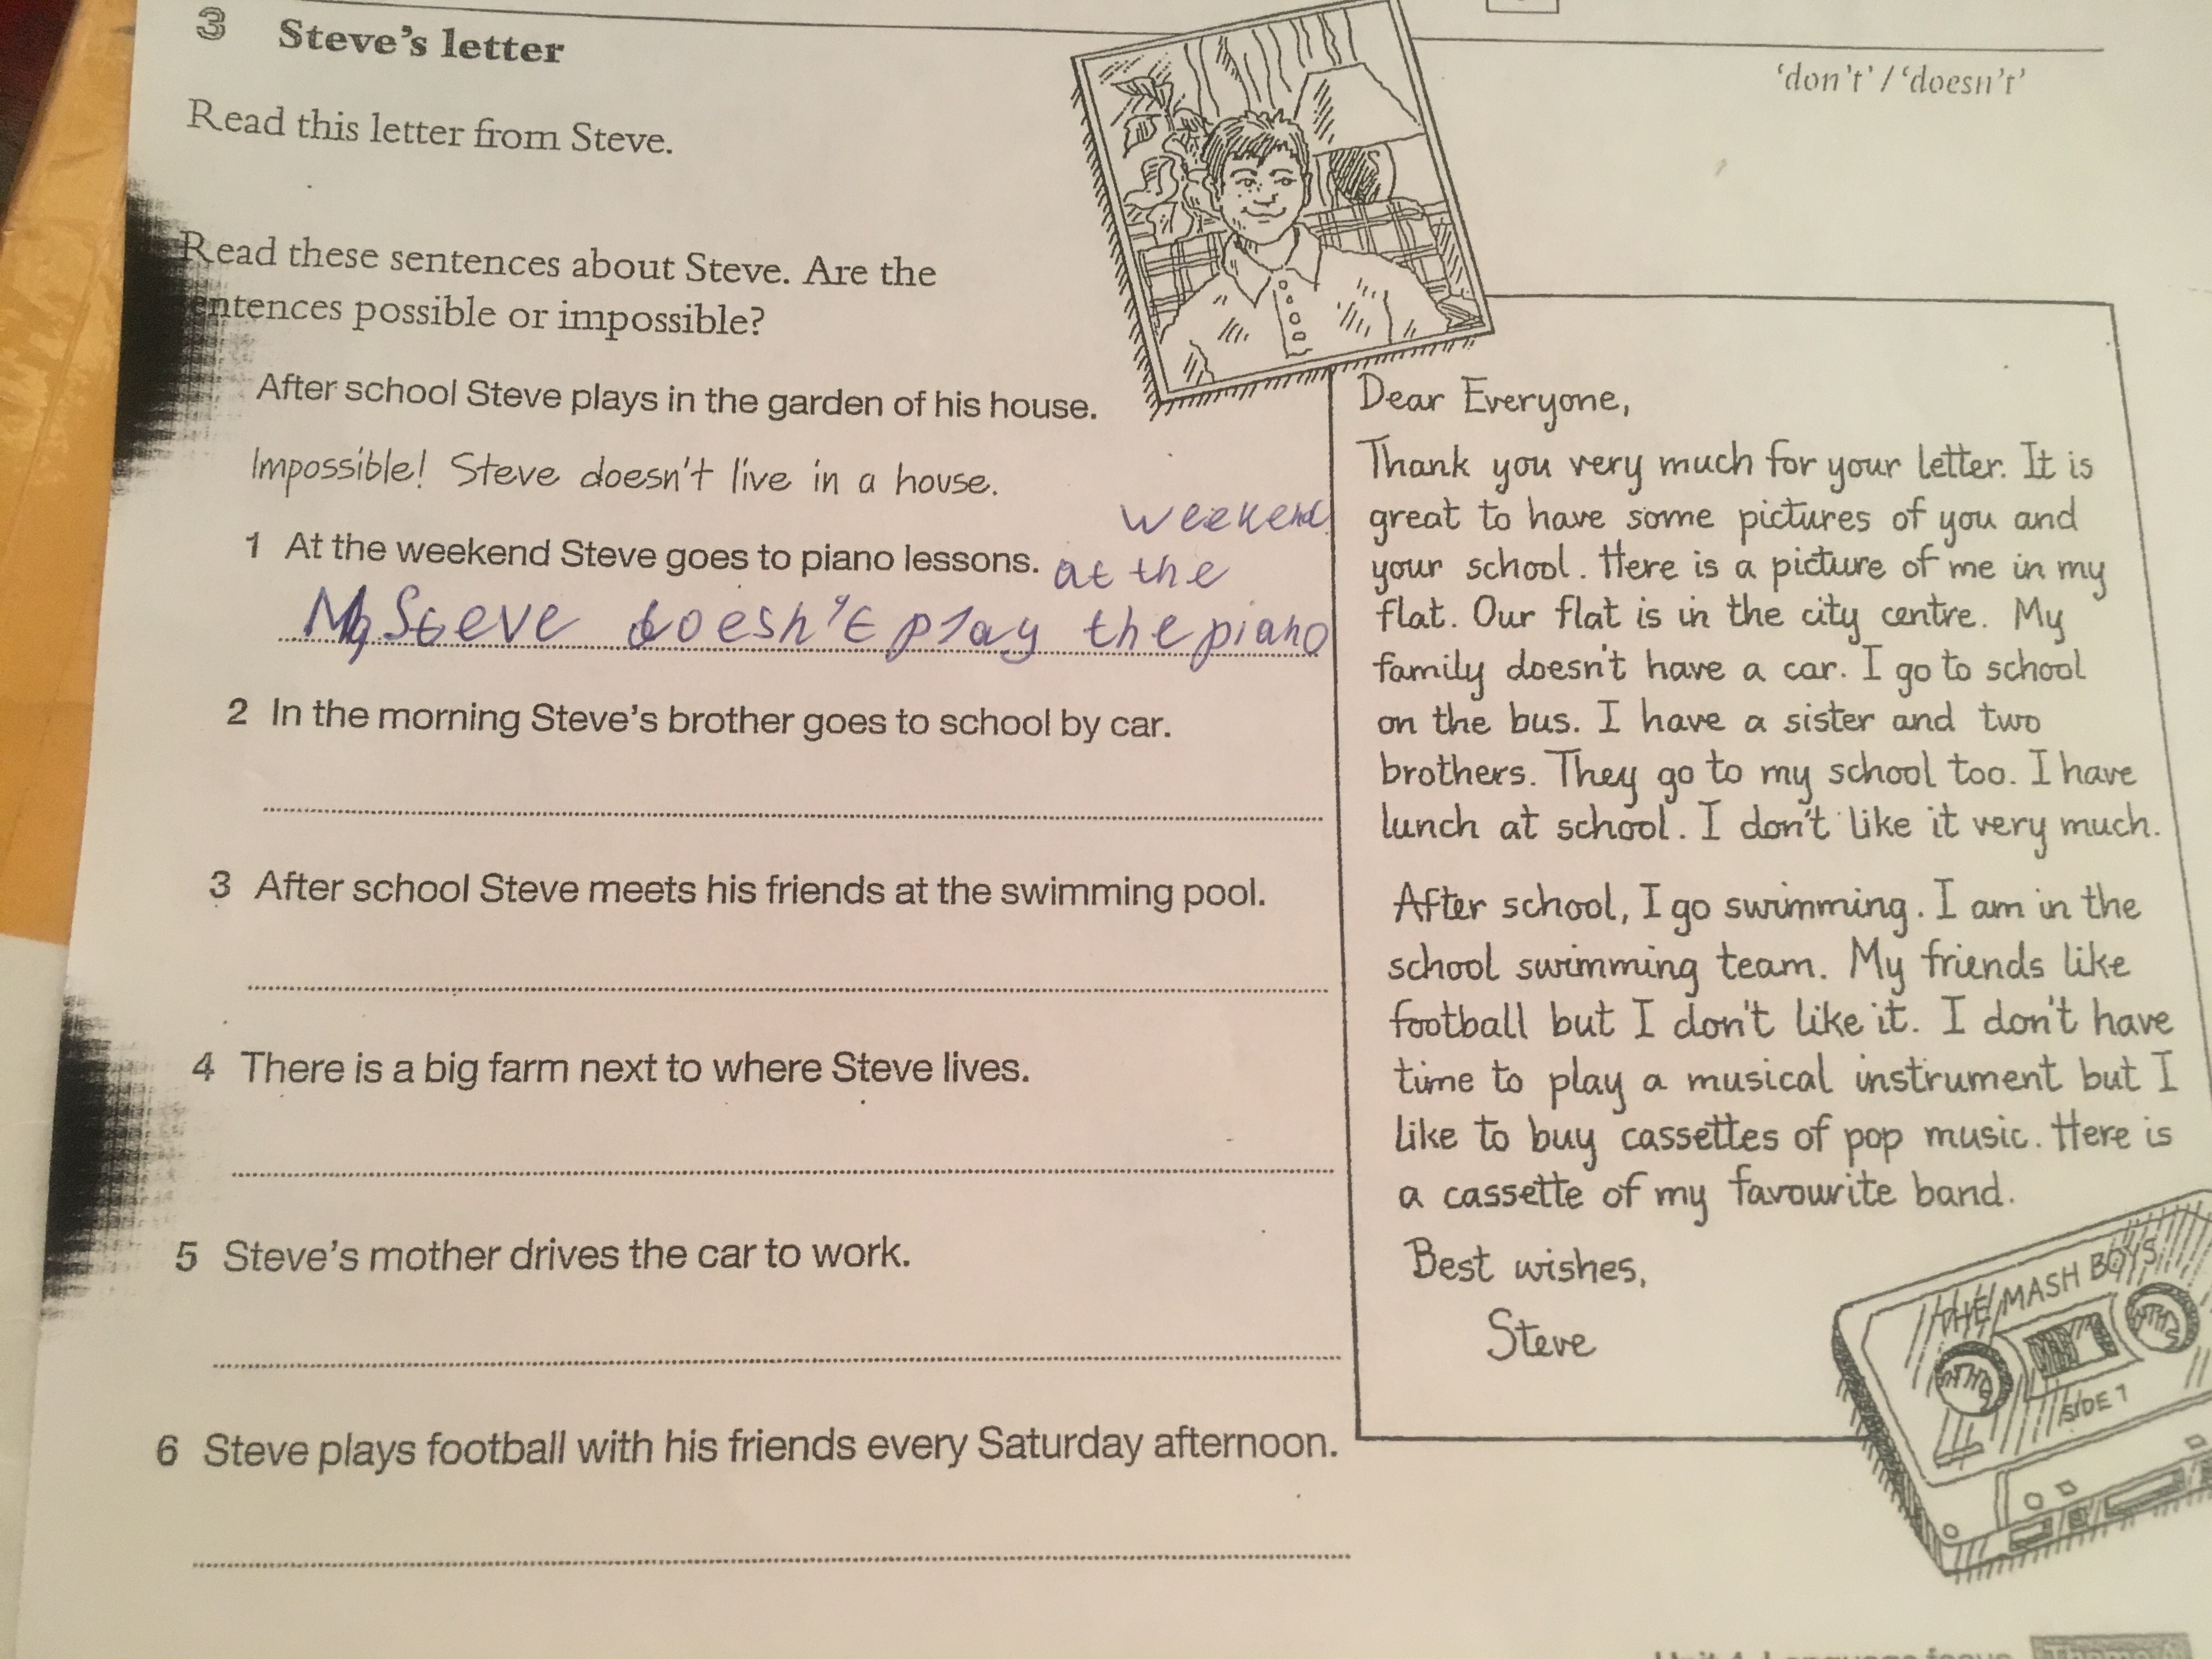 3 Steve's letter
'don't' / 'doesn't'
Read this letter from Steve.
Read these sentences about Steve. Are the
entences possible or impossible?
After school Steve plays in the garden of his house.
Impossible! Steve doesn't live in a house.
1 At the weekend Steve goes to piano lessons.
Steve doesn't play the piano
at the
weekend
2 In the morning Steve's brother goes to school by car.
3 After school Steve meets his friends at the swimming pool.
4 There is a big farm next to where Steve lives.
5 Steve's mother drives the car to work.
6 Steve plays football with his friends every Saturday afternoon.
Dear Everyone,
Thank you very much for your letter. It is
great to have some pictures of you and
your school. Here is a picture of me in my
flat. Our flat is in the city centre. My
family doesn't have a car. I go to school
on the bus. I have a sister and two
brothers. They go to my school too. I have
lunch at school. I don't like it very much.
After school, I go swimming. I am in the
school swimming team. My friends like
football but I don't like it. I don't have
time to play a musical instrument but I
like to buy cassettes of pop music. Here is
a cassette of my favourite band.
Best wishes,
Steve
THE MASH BOYS
SIDE 1